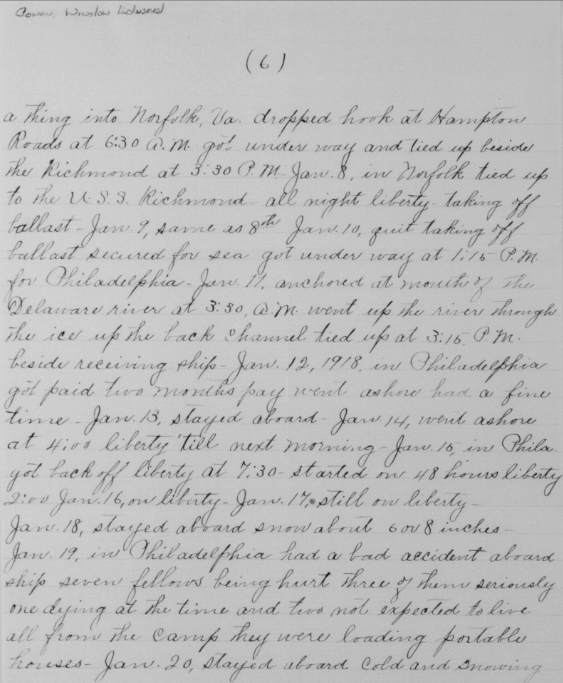 Cowen, Winslow Edward
(6)
a thing into Norfolk, Va. dropped hook at Hampton
Roads at 6:30 A.M. got under way and tied up beside
the Richmond at 3:30 P.M. Jan. 8, in Norfolk tied up
to the U.S.S. Richmond - all night liberty - taking off
ballast - Jan. 9, same as 8th Jan. 10, quit taking off
ballast secured for sea got under way at 1:15 P.M.
for Philadelphia - Jan. 11, anchored at mouth of the
Delaware river at 3:30, A.M. went up the river through
the ice up the back channel tied up at 3:15, P.M.
beside receiving ship - Jan. 12, 1918, in Philadelphia
got paid two months pay went ashore had a fine
time - Jan. 13, stayed aboard - Jan. 14, went ashore
at 4:00 liberty till next morning - Jan. 15, in Phila.
got back off liberty at 7:30 - started on 48 hours liberty
2:00 Jan. 16, on liberty - Jan. 17, still on liberty -
Jan. 18, stayed aboard snow about 6 or 8 inches -
Jan. 19, in Philadelphia had a bad accident aboard
ship seven fellows being hurt three of them seriously
one dying at the time and two not expected to live
all from the camp they were loading portable
houses - Jan. 20, stayed aboard cold and snowing